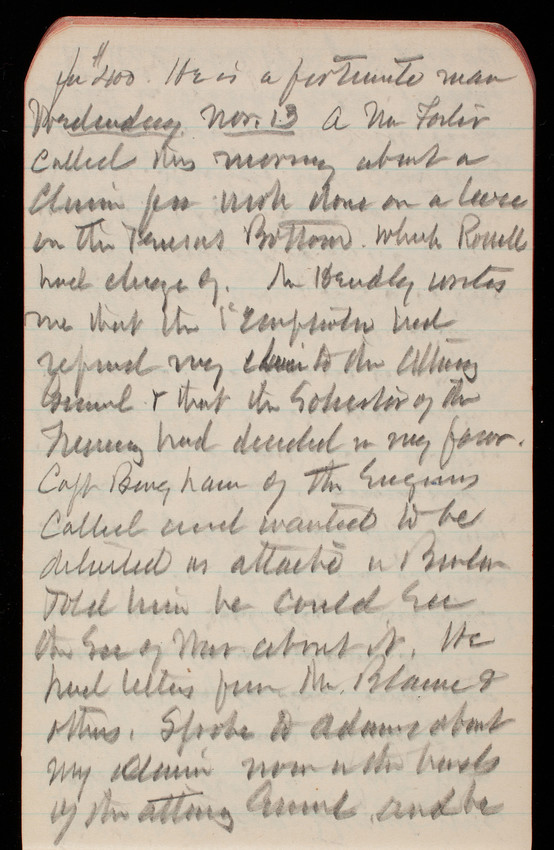 for $400. He is a fortunate man
Wednesday Nov. 13 A Mr Foster
called this morning about a
claim for work done on a levee
on the Tensas Bottom which Rowell
had charge of. Mr Handley writes
me that the 1st Comptroller had
referred my claim to the Attorney
General & that the Solicitor of the
Treasury had decided in my favor.
Capt Bingham of the Engineers
called and wanted to be
detailed as attaché in Berlin
Told him he could see
the Sec of War about it. He
had letters from Mr. Blaine &
others. Spoke to Adams about
my claim now in the hands
of the Attorney General and he